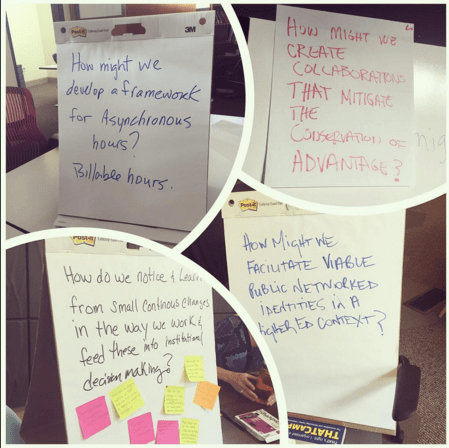 Post-it
3M
How might we
develop a framework
for Asynchronous
hours?
Billable hours.
How might we
create
collaborations
that mitigate
the
conservation of
advantage?
Post-it
How do we notice & Learn
from small continous changes
in the way we work &
feed these into institutional
decision making?
Post-it
How Might We
Facilitate Viable
Public Networked
Identities in a
Higher Ed Context?
THATCAMP